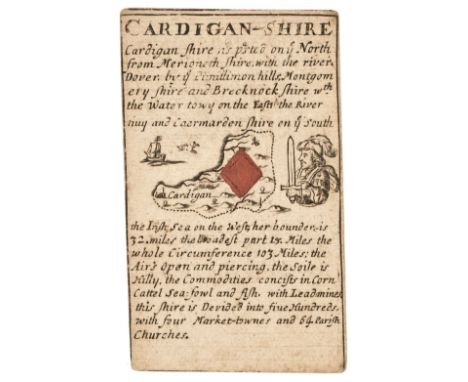 CARDIGAN-SHIRE
Cardigan shire is parted on yͤ North
from Merioneth shire, with the river,
Dover, by yͤ plinillimon hills, Montgom
ery shire and Brecknock shire wth
the Water towy on the East the River
tivy and Caermarden shire on yͤ South
Cardigan
the Irish Sea on the West, her bounder, is
32, miles the broadest part 18 Miles the
whole Circumference 103 Miles; the
Air's Open and piercing, the Soile is
Hilly, the Commodities concists in Corn
Cattel Sea-fowl and fish, with Leadmines
this shire is Devided into five Hundreds,
with four Market-townes and 64 Parish
Churches.